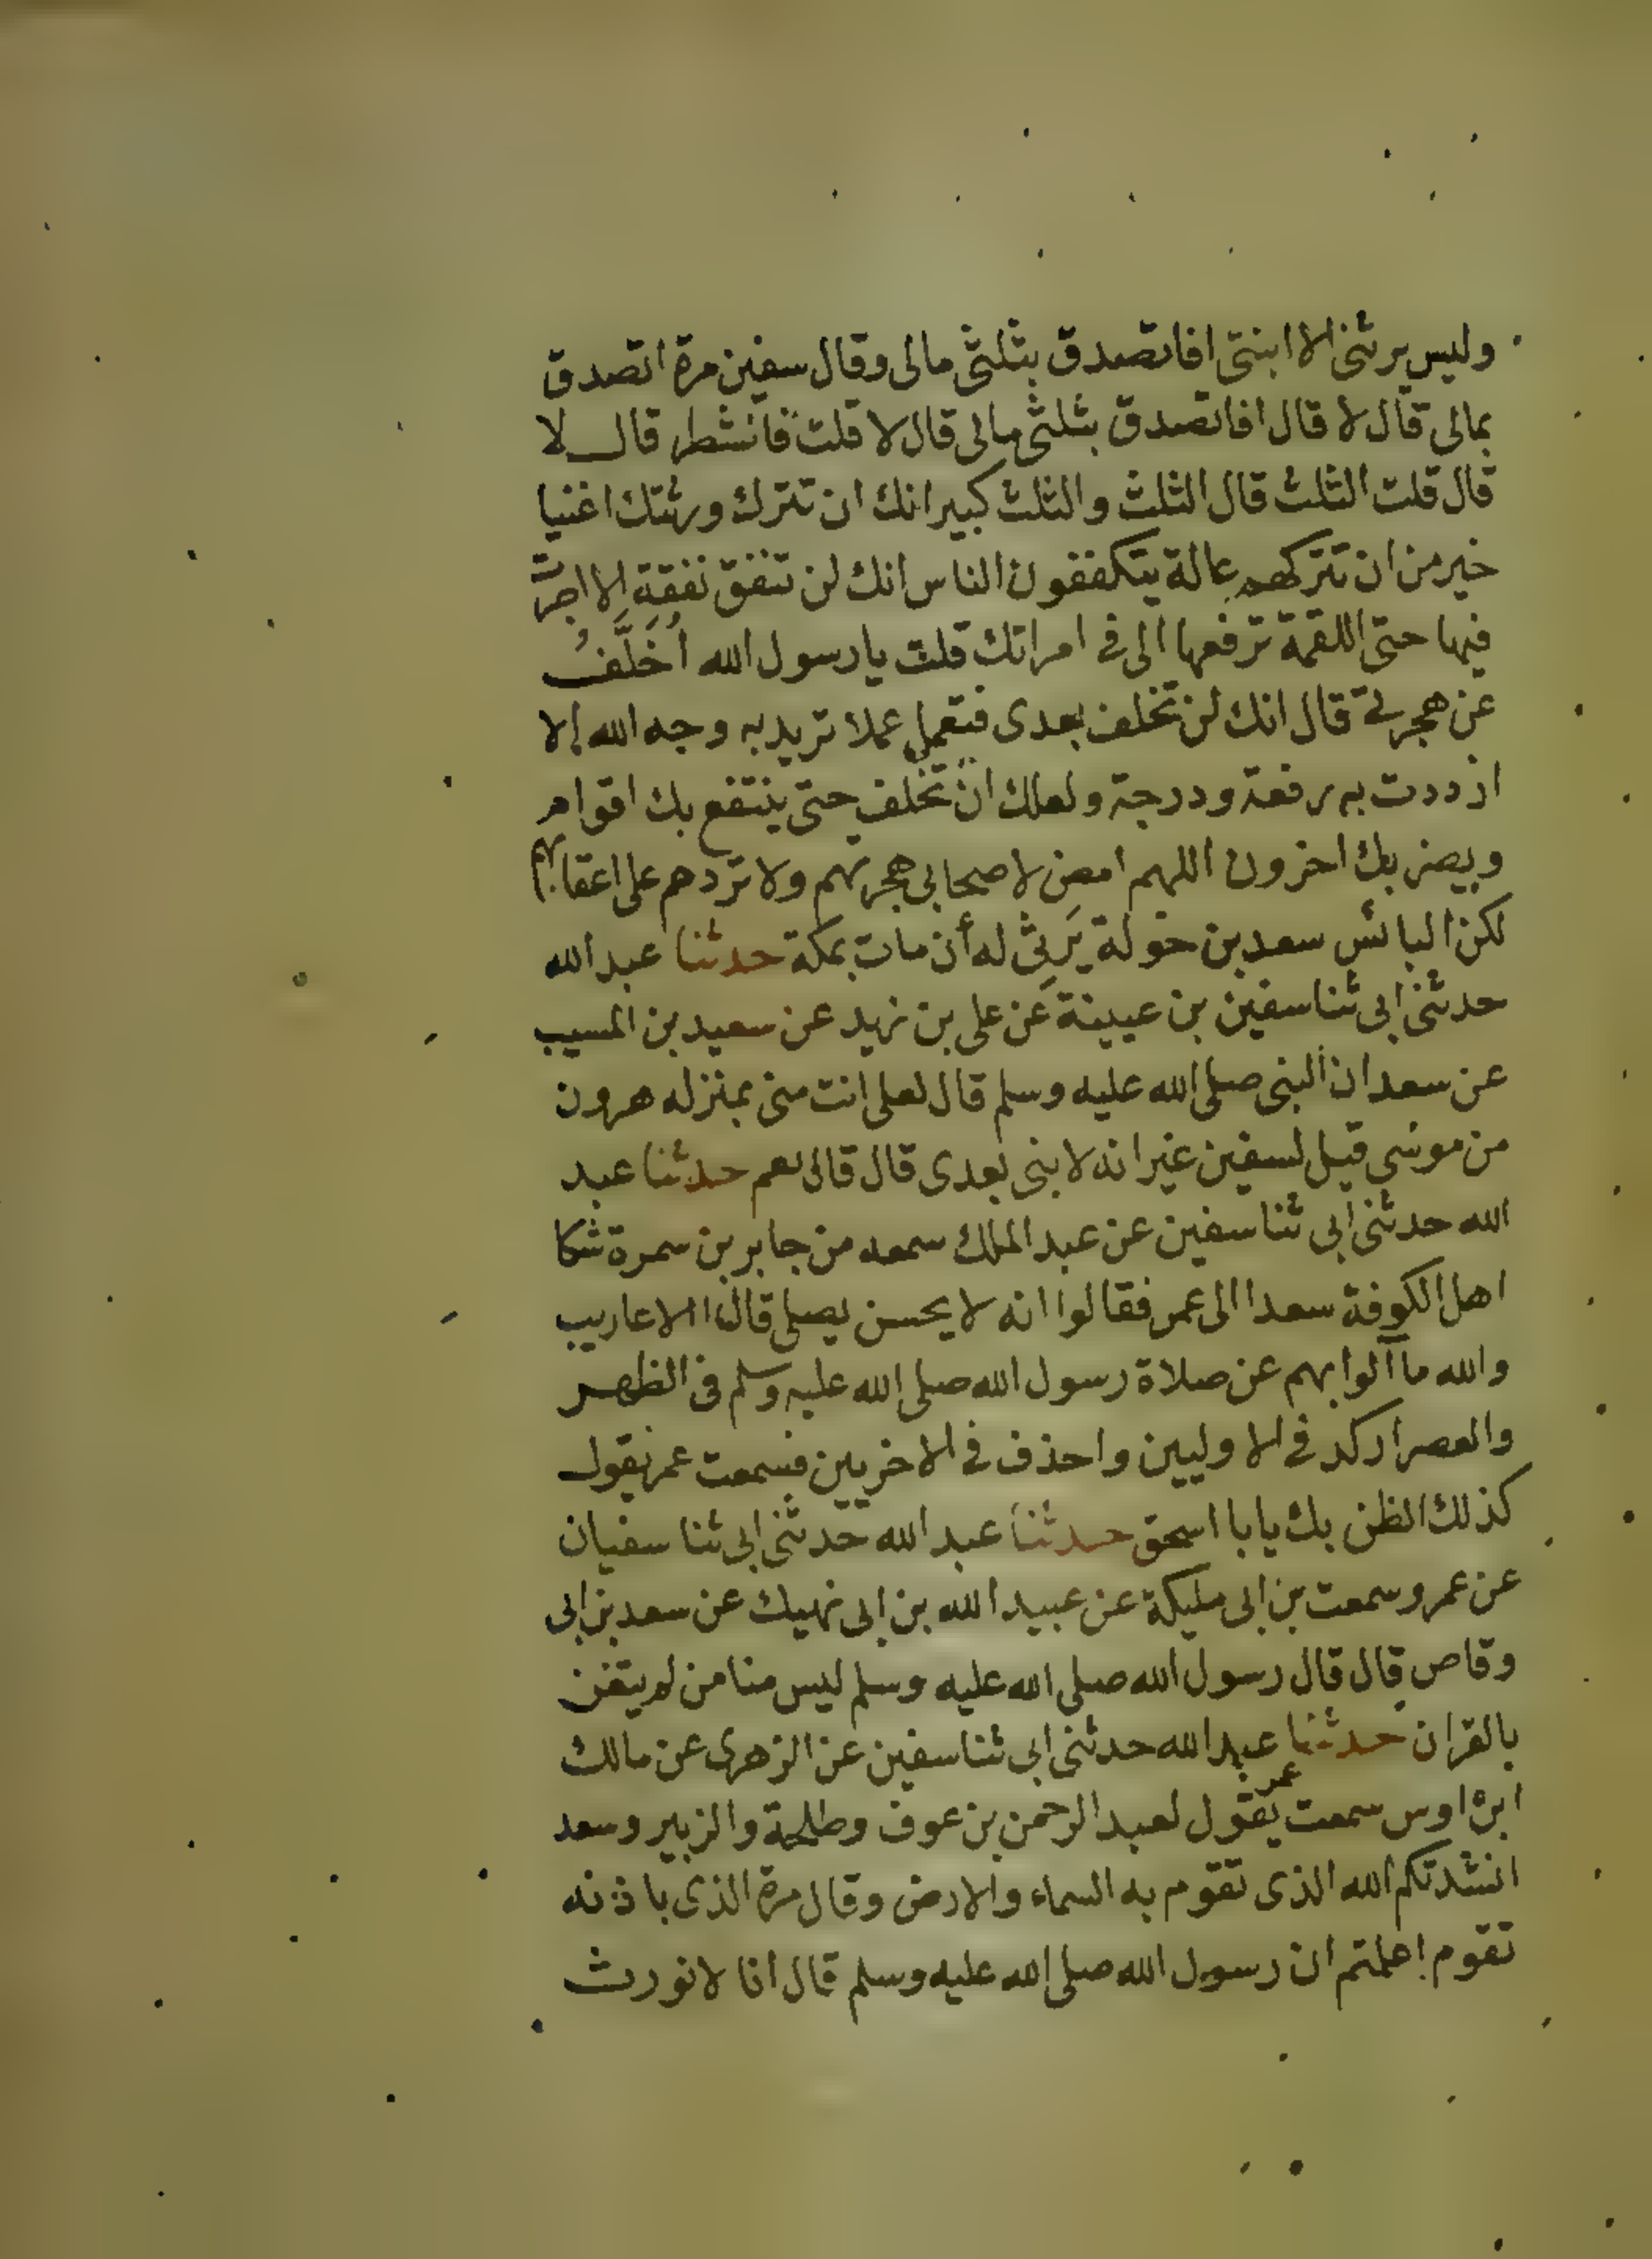 وليس يرثنى الا ابنتى افاتصدق بثلثى مالى وقال سفين مرة اتصدق
بمالى قال لا قال افاتصدق بثلثى مالى قال لا قلت فالشطر قال لا
قال قلت الثلث قال الثلث والثلث كبير انك ان تترك ورثتك اغنيا
خير من ان تتركهم عالة يتكففون الناس انك لن تنفق نفقة الا اجرت
فيها حتى اللقمة ترفعها الى في امراتك قلت يا رسول الله أُخَلَّفُ
عن هجرتى قال انك لن تخلف بعدى فتعمل عملا تريد به وجه الله الا
ازددت به رفعة ودرجة ولعلك ان تخلف حتى ينتفع بك اقوام
ويضر بك اخرون اللهم امض لاصحابى هجرتهم ولا تردهم على اعقابهم
لكن البائس سعد بن خولة يَرِثى له أن مات بمكة حدثنا عبد الله
حدثنى ابى ثنا سفين بن عيينة عن على بن زيد عن سعيد بن المسيب
عن سعد ان النبى صلى الله عليه وسلم قال لعلى انت منى بمنزله هرون
من موسى قيل لسفين غير انه لا نبى بعدى قال قالى نعم حدثنا عبد
الله حدثنى ابى ثنا سفين عن عبد الملك سمعه من جابر بن سمرة شكا
اهل الكوفة سعدا الى عمر فقالوا انه لا يحسن يصلى قال االاعاريب
والله ما آلوا بهم عن صلاة رسول الله صلى الله عليه وسلم فى الظهر
والعصر اركد في الاوليين واحذف في الاخريين فسمعت عمر يقول
كذلك الظن بك يا با اسحق حدثنا عبد الله حدثنى ابى ثنا سفيان
عن عمرو سمعت بن ابى مليكة عن عبيد الله بن ابى نهيك عن سعد بن ابى
وقاص قال قال رسول الله صلى الله عليه وسلم ليس منا من لم يتغن
بالقران حدثنا عبد الله حدثنى ابى ثنا سفين عن الزهرى عن مالك
ابن اوس سمعت عمر يقول لعبد الرحمن بن عوف وطلحة والزبير وسعد
انشدتكم الله الذى تقوم به السماء والارض وقال مرة الذى باذنه
تقوم اعلمتم ان رسول الله صلى الله عليه وسلم قال انا لا نورث